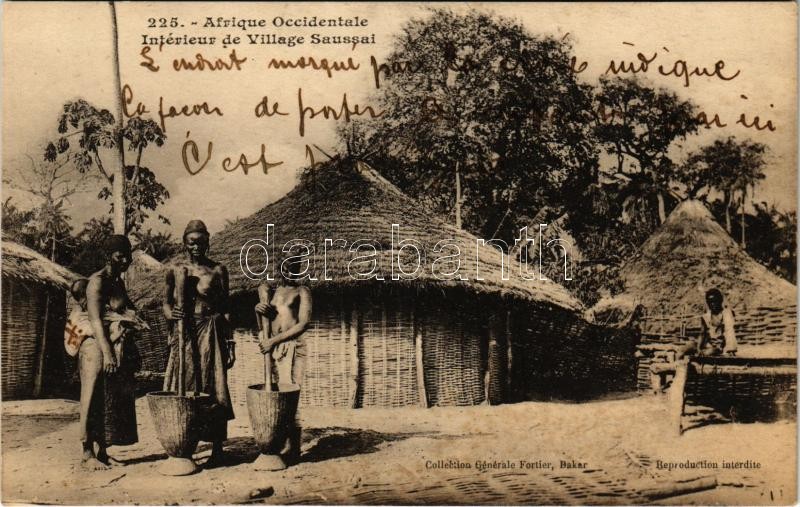 225. - Afrique Occidentale
Intérieur de Village Saussai
L'endroit marqué par la croix indique
la façon de porter
par ici
C'est
darabanth
Collection Générale Fortier, Dakar
Reproduction interdite